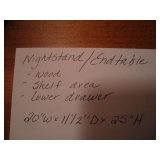 Nightstand/Endtable
- wood
- Shelf area
- Lower drawer
20"W x 11 1/2"D x 25"H